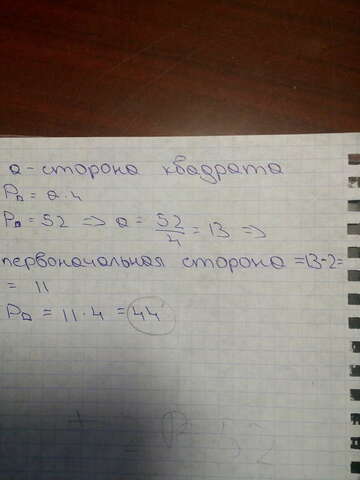 a - сторона квадрата
P□ = a · 4
P□ = 52 => a = 52/4 = 13 =>
первоначальная сторона = 13 - 2 =
= 11
P□ = 11 · 4 = 44